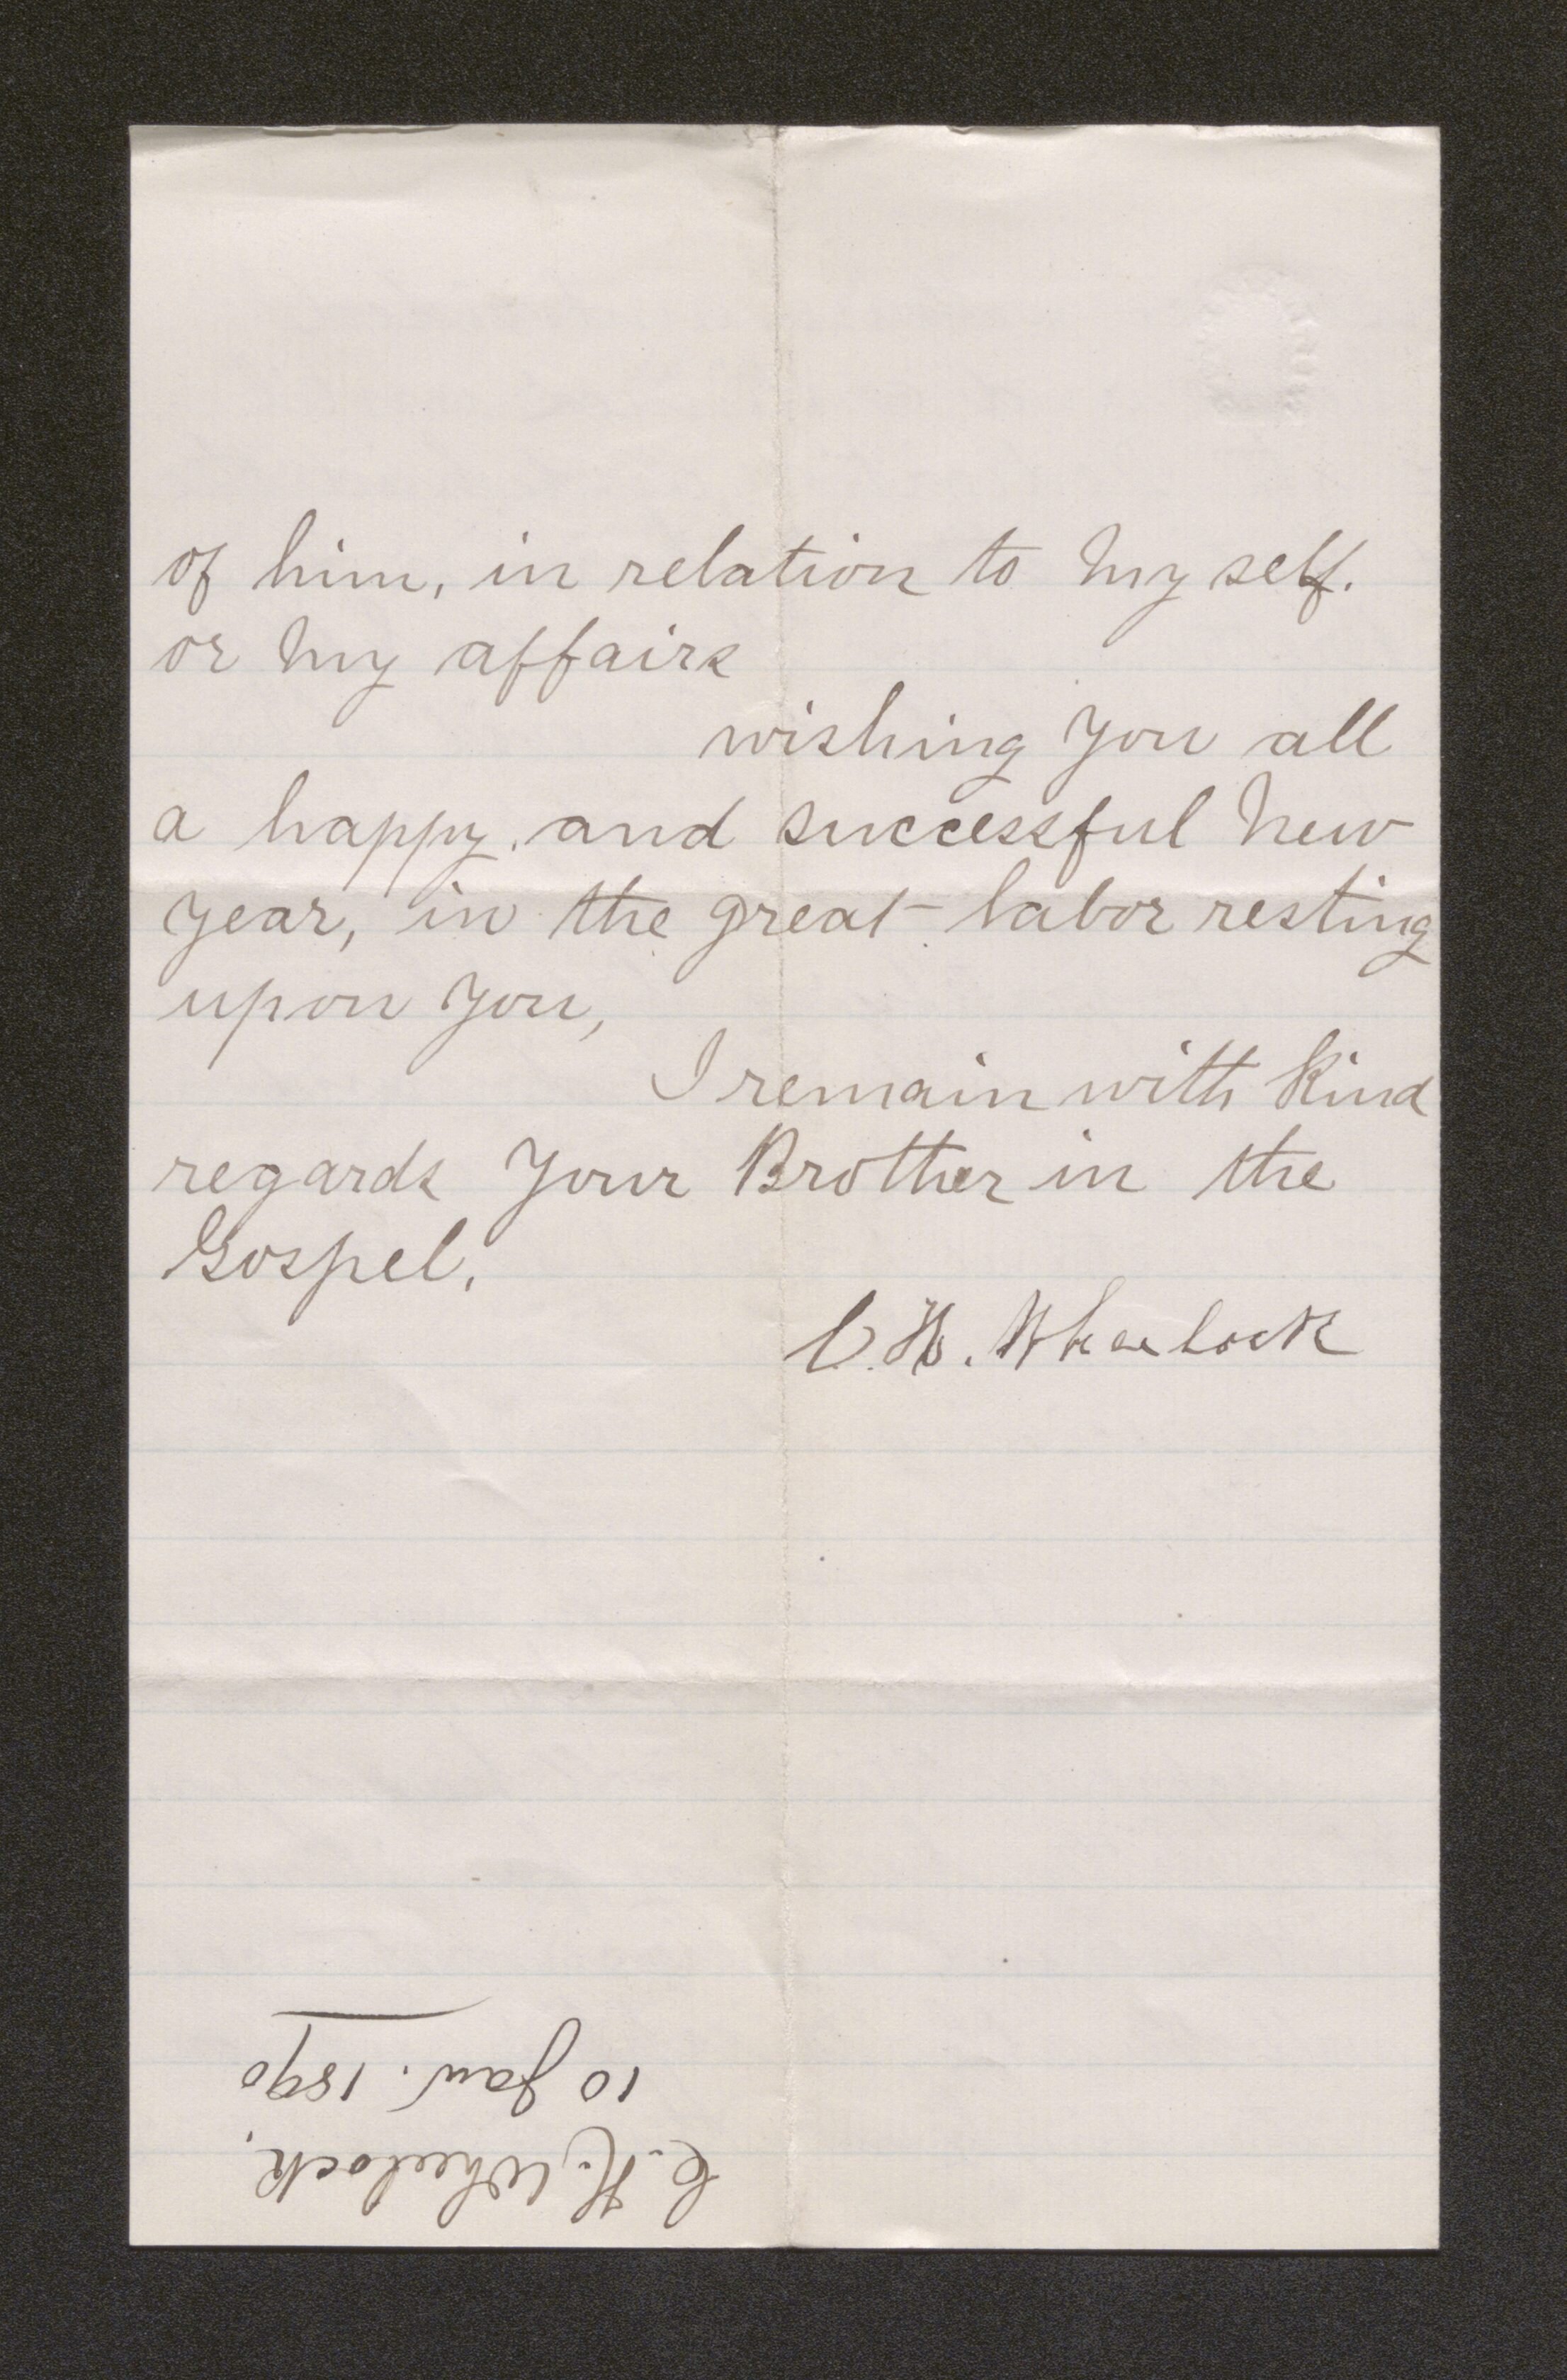 of him, in relation to my self.
or my affairs
wishing you all
a happy, and successful New
year, in the great labor resting
upon you,
I remain with kind
regards your Brother in the
Gospel.
C. H. Wheelock
C. H. Wheelock,
10 Jan. 1890